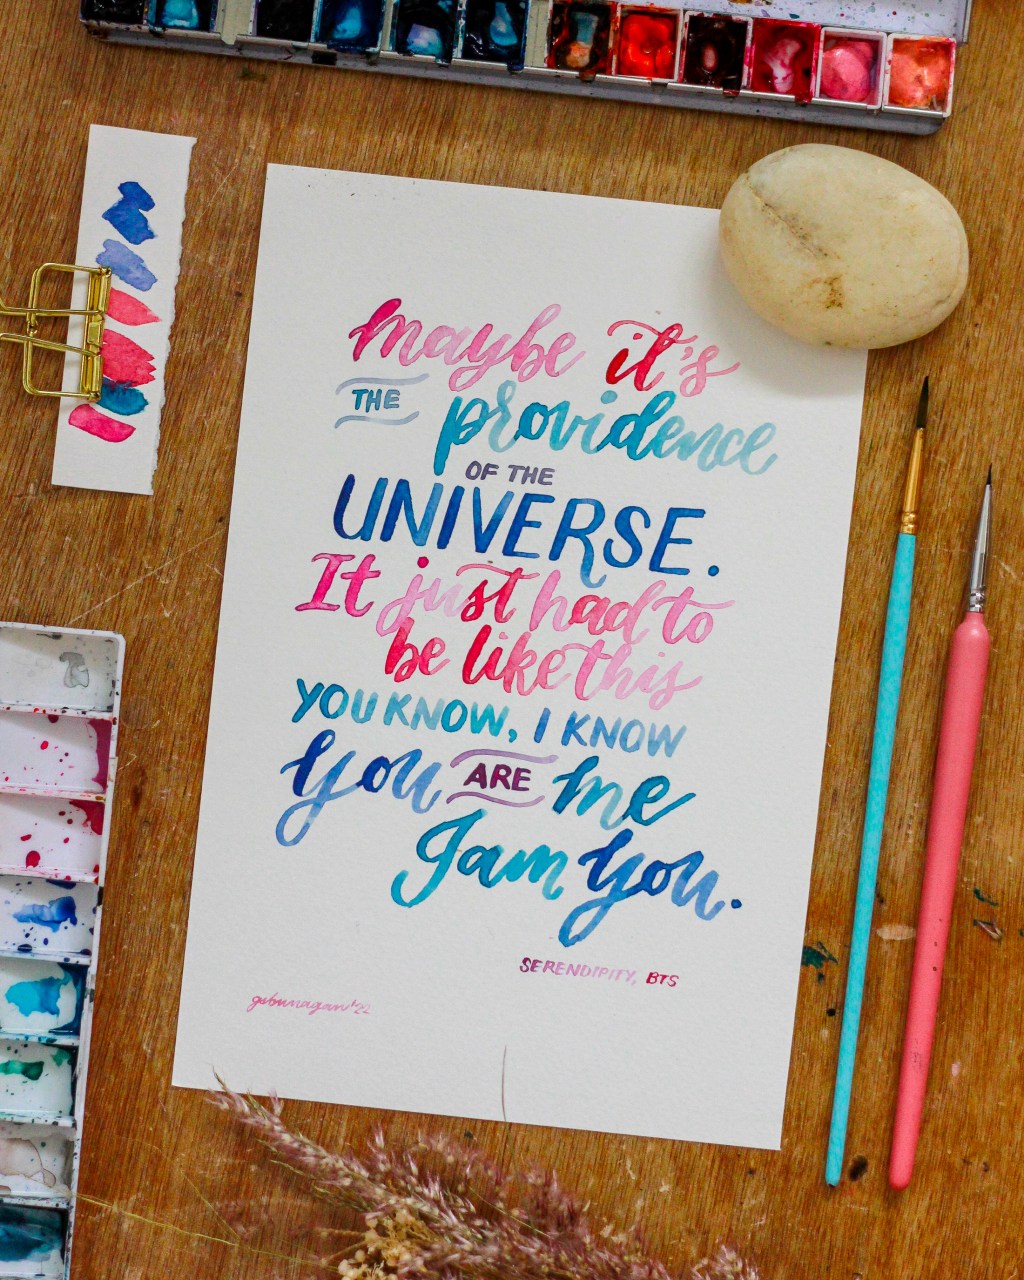 maybe it's
THE providence
OF THE
UNIVERSE.
It just had to
be like this
YOU KNOW, I KNOW
You ARE me
I am you.
SERENDIPITY, BTS
gsbunagan '22